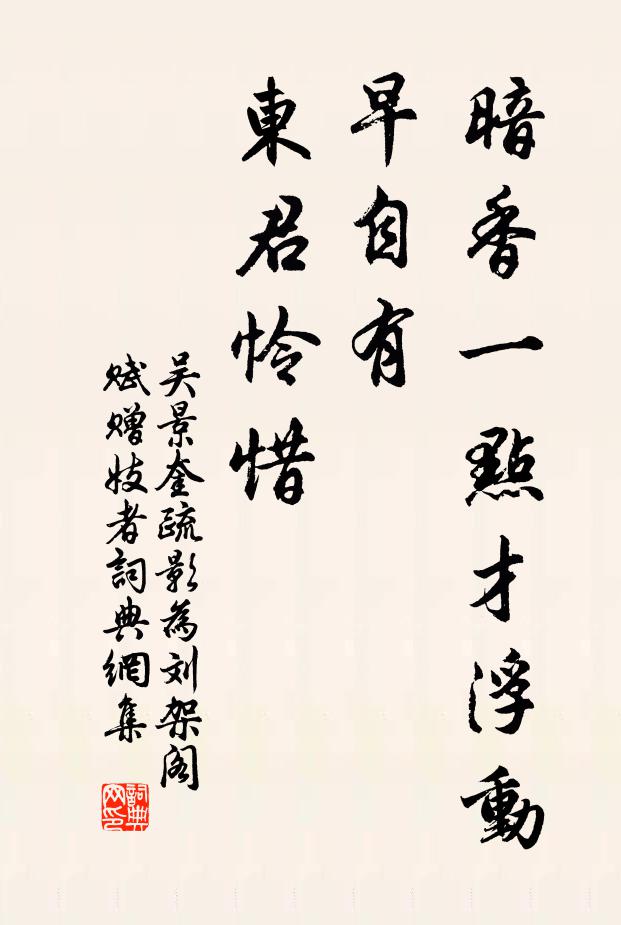 暗香一點才浮動
早自有
東君怜惜
吴景奎疏影為刘架阁
赋赠妓者詞典網集
詞典
网印